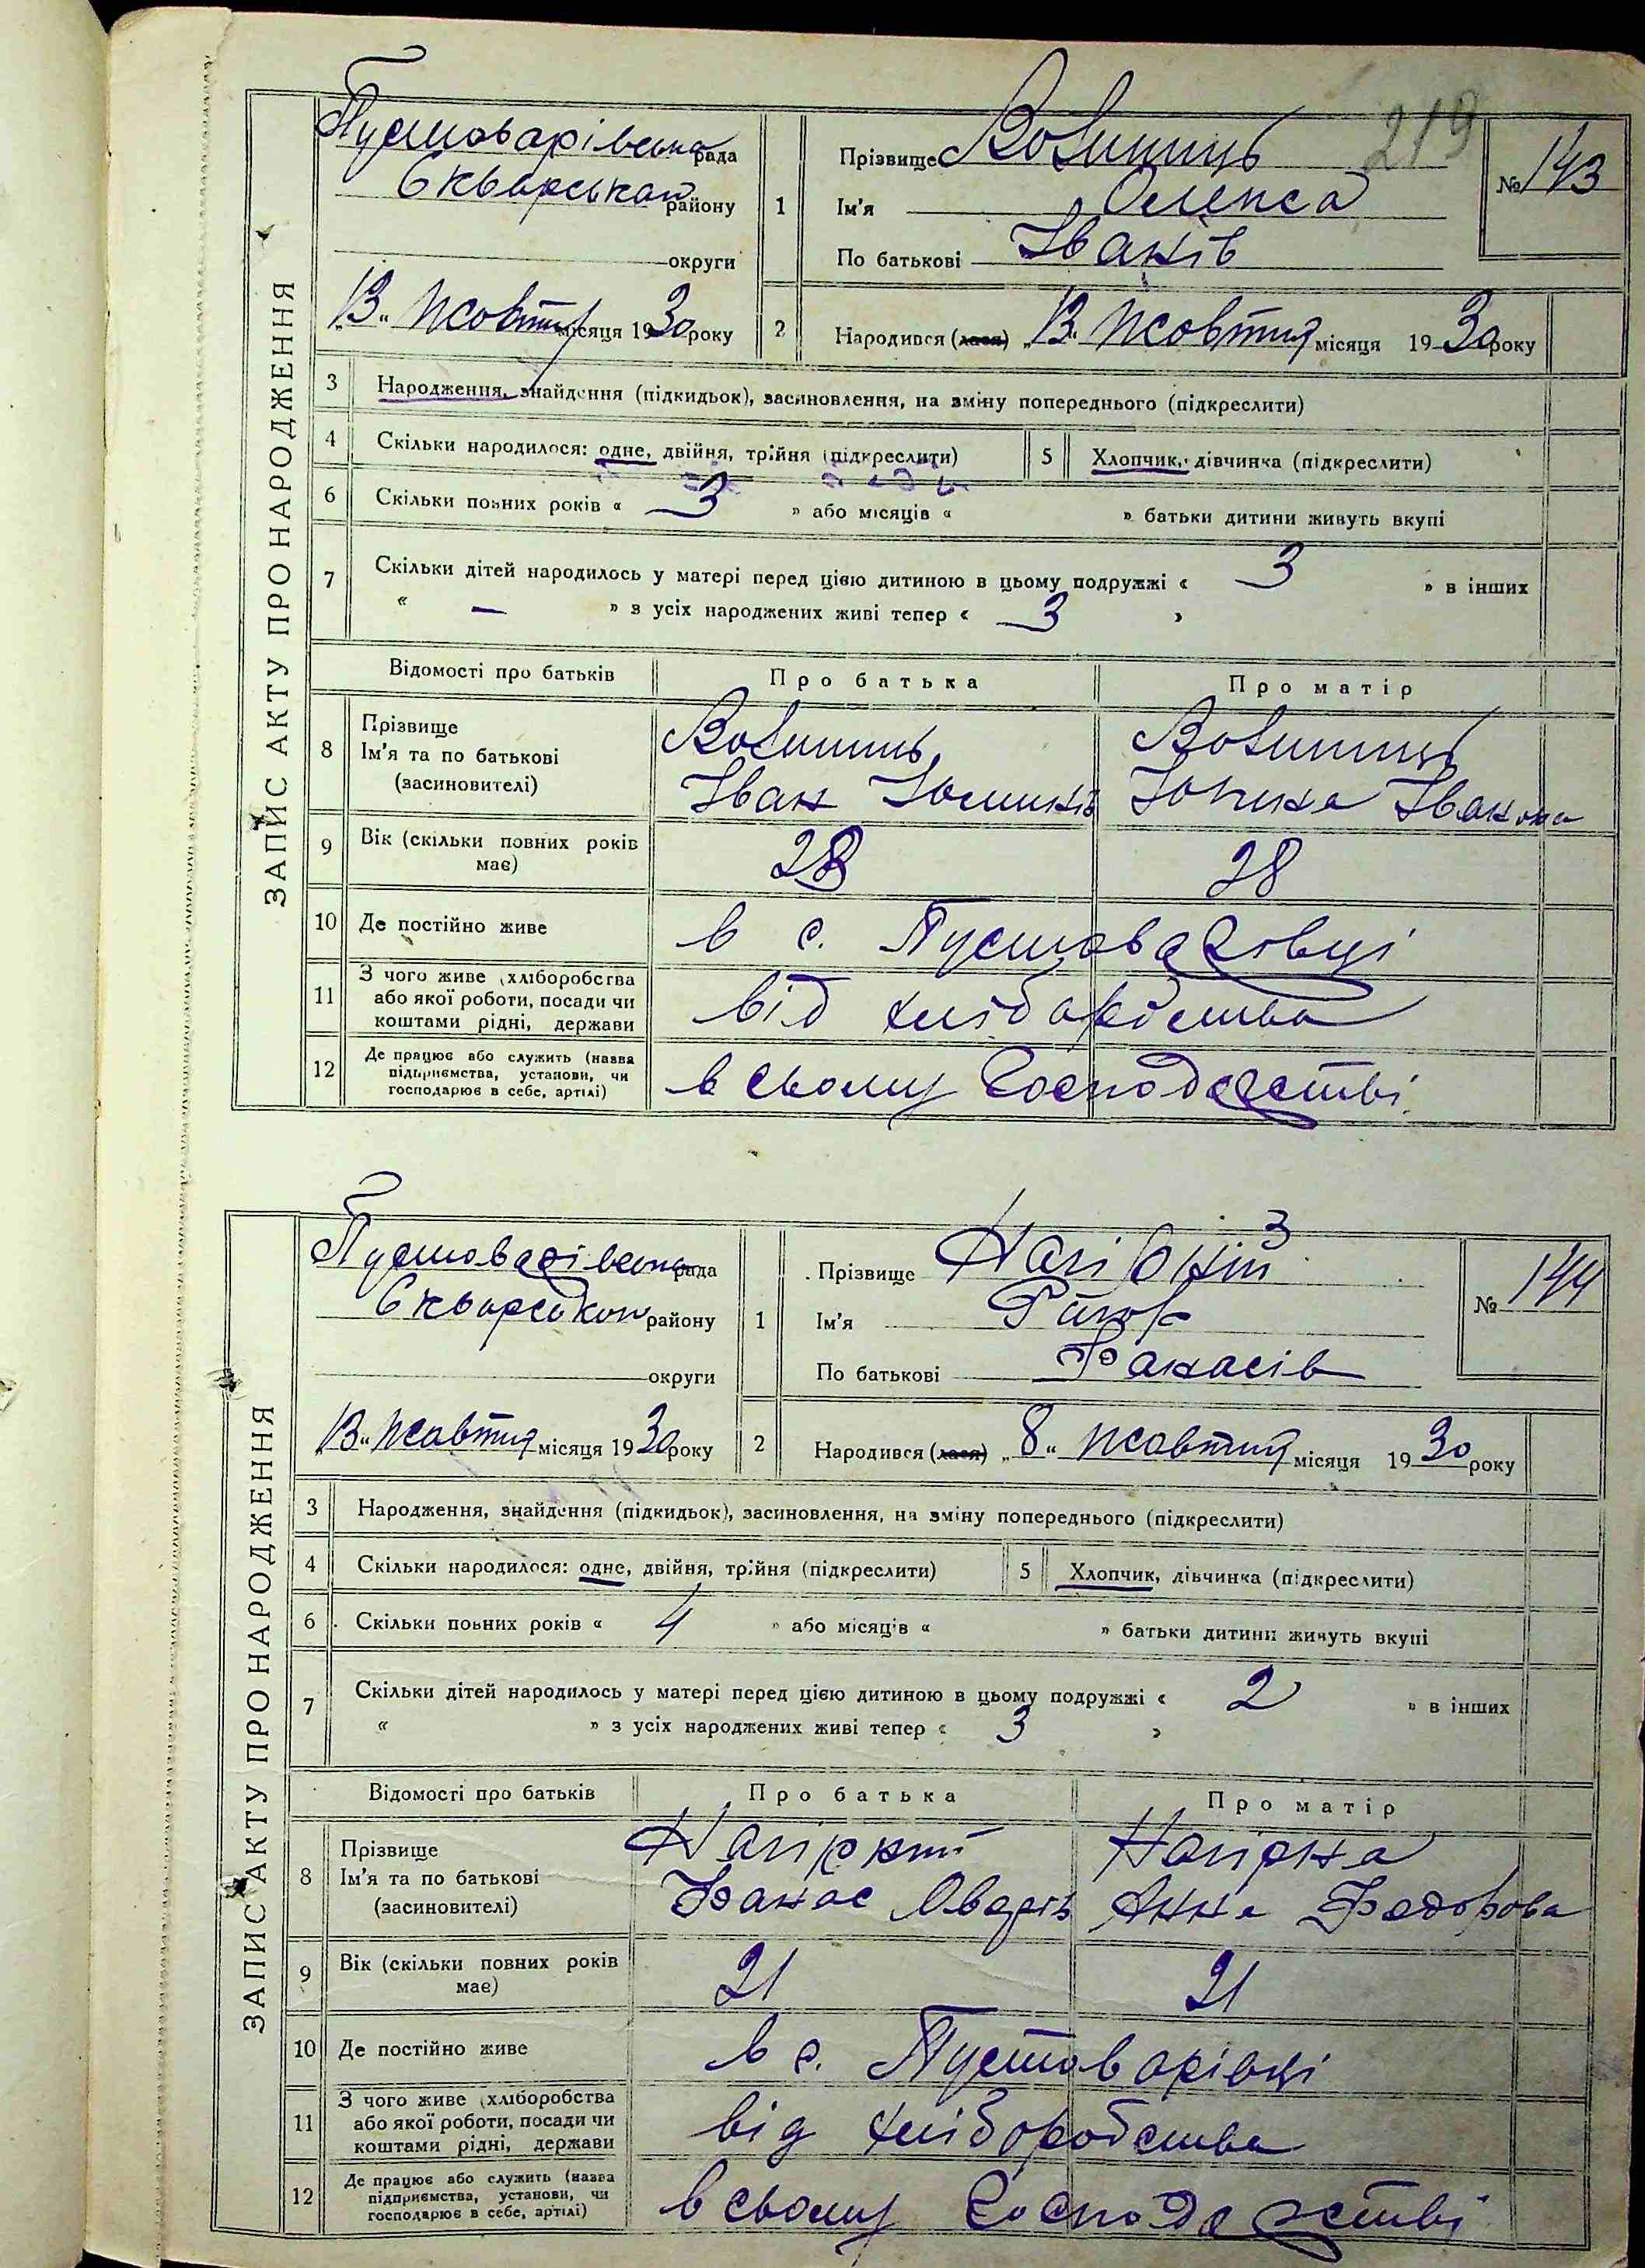 219
ЗАПИС АКТУ ПРО НАРОДЖЕННЯ
Пустоварівська рада
Сквирського району
округи
„13“ Жовтня місяця 1930 року
1
Прізвище
Ім'я Олекса
По батькові Іванів
№ 143
2
Народився (лася) „13“ Жовтня місяця 1930 року
3 Народження, знайдення (підкидьок), засиновлення, на зміну попереднього (підкреслити)
4 Скільки народилося: одне, двійня, трійня (підкреслити)
5 Хлопчик, дівчинка (підкреслити)
6 Скільки повних років « 3 » або місяців « » батьки дитини живуть вкупі
7 Скільки дітей народилось у матері перед цією дитиною в цьому подружжі « 3 » в інших
« — » з усіх народжених живі тепер « 3 »
Відомості про батьків Про батька Про матір
8 Прізвище
Ім'я та по батькові
(засиновителі)
Іван
Іванова
9 Вік (скільки повних років має) 28 28
10 Де постійно живе в с. Пустоварівці
11 З чого живе (хліборобства
або якої роботи, посади чи
коштами рідні, держави
від хліборобства
12 Де працює або служить (назва
підприємства, установи, чи
господарює в себе, артілі)
в свому господарстві
ЗАПИС АКТУ ПРО НАРОДЖЕННЯ
Пустоварівська рада
Сквирського району
округи
„13“ Жовтня місяця 1930 року
1
Прізвище Нагірний
Ім'я
По батькові Панасів
№ 144
2
Народився (лася) „8“ Жовтня місяця 1930 року
3 Народження, знайдення (підкидьок), засиновлення, на зміну попереднього (підкреслити)
4 Скільки народилося: одне, двійня, трійня (підкреслити)
5 Хлопчик, дівчинка (підкреслити)
6 Скільки повних років « 4 » або місяців « » батьки дитини живуть вкупі
7 Скільки дітей народилось у матері перед цією дитиною в цьому подружжі « 2 » в інших
« » з усіх народжених живі тепер « 3 »
Відомості про батьків Про батька Про матір
8 Прізвище
Ім'я та по батькові
(засиновителі)
Нагірний Нагірна
Панас Анна Федорова
9 Вік (скільки повних років має) 21 21
10 Де постійно живе в с. Пустоварівці
11 З чого живе (хліборобства
або якої роботи, посади чи
коштами рідні, держави
від хліборобства
12 Де працює або служить (назва
підприємства, установи, чи
господарює в себе, артілі)
в свому господарстві